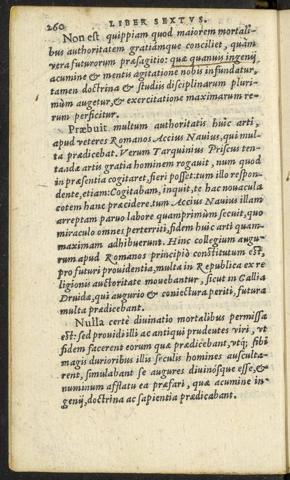 260
LIBER SEXTVS.
Non est quippiam quod maiorem mortali-
bus authoritatem gratiámque conciliet, quàm
vera futurorum præsagitio: quæ quanuis ingenij
acumine & mentis agitatione nobis infundatur,
tamen doctrina & studiis disciplinarum pluri-
mùm augetur, & exercitatione maximarum re-
rum perficitur.
Præbuit multum authoritatis huic arti,
apud veteres Romanos Accius Nauius, qui mul-
ta prædicebat. Verum Tarquinius Priscus ten-
taadæ artis gratia hominem rogauit, num quod
in præsentia cogitaret, fieri posset: tum illo respon-
dente, etiam: Cogitabam, inquit, te hac nouacula
cotem hanc præcidere. tum Accius Nauius illam
arreptam paruo labore quamprimùm secuit, quo
miraculo omnes perterriti, fidem huic arti quam-
maximam adhibuerunt. Hinc collegium augu-
rum apud Romanos principiò constitutum est,
pro futuri prouidentia, multa in Republica ex re-
ligionis auctoritate mouebantur, sicut in Gallia
Druidæ, qui augurio & coniectura periti, futura
multa prædicebant.
Nulla certè diuinatio mortalibus permissa
est: sed prouidi illi ac antiqui prudentes viri, vt
fidem facerent eorum quæ prædicebant, vtq; sibi
magis durioribus illis seculis homines auscula-
rent, simulabant se augures diuinósque esse, &
numinum afflatu ea præfari, quæ acumine in-
genij, doctrina ac sapientia prædicabant.